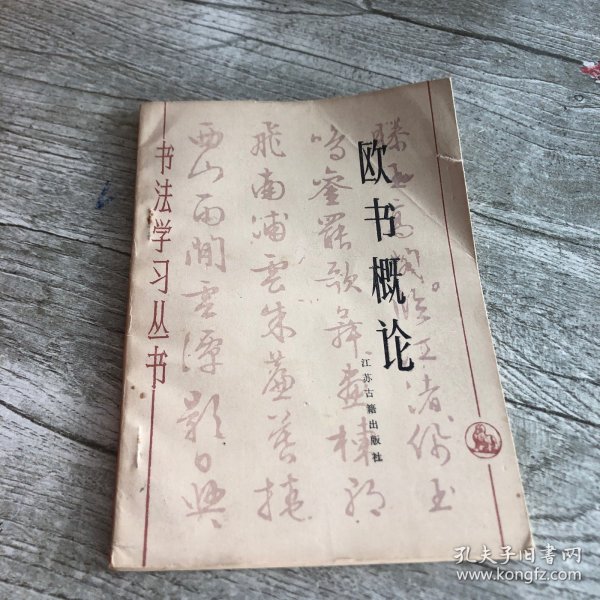 欧书概论
江苏古籍出版社
书法学习丛书
滕王高阁临江渚佩玉
鸣銮罢歌舞画栋朝
飞南浦云朱帘暮捲
西山雨閒云潭影日
孔夫子旧书网
www.kongfz.com